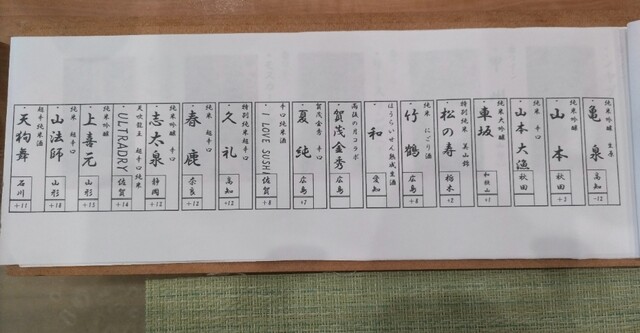 純米吟醸 生原
亀泉
高知
-12
純米吟醸
山本
秋田
+3
純米吟醸
山本 大漁
秋田
純米大吟醸
車坂
和歌山
+1
特別純米 美山錦
松の寿
栃木
+3
純米 にごり酒
竹鶴
広島
+8
ほうらいせん熟成生酒
和
愛知
高橋六月コラボ
賀茂金秀
広島
賀茂金秀 辛口
夏純
広島
+7
辛口純米酒
I LOVE SUSHI
佐賀
+8
特別純米超辛口
久礼
高知
+12
純米 超辛口
春鹿
奈良
+12
純米吟醸 辛口
志太泉
静岡
+12
天吹 超辛口純米
ULTRADRY
佐賀
+14
純米吟醸 超辛口
上喜元
山形
+12
純米 超辛口
山法師
山形
+18
超辛純米酒
天狗舞
石川
+11